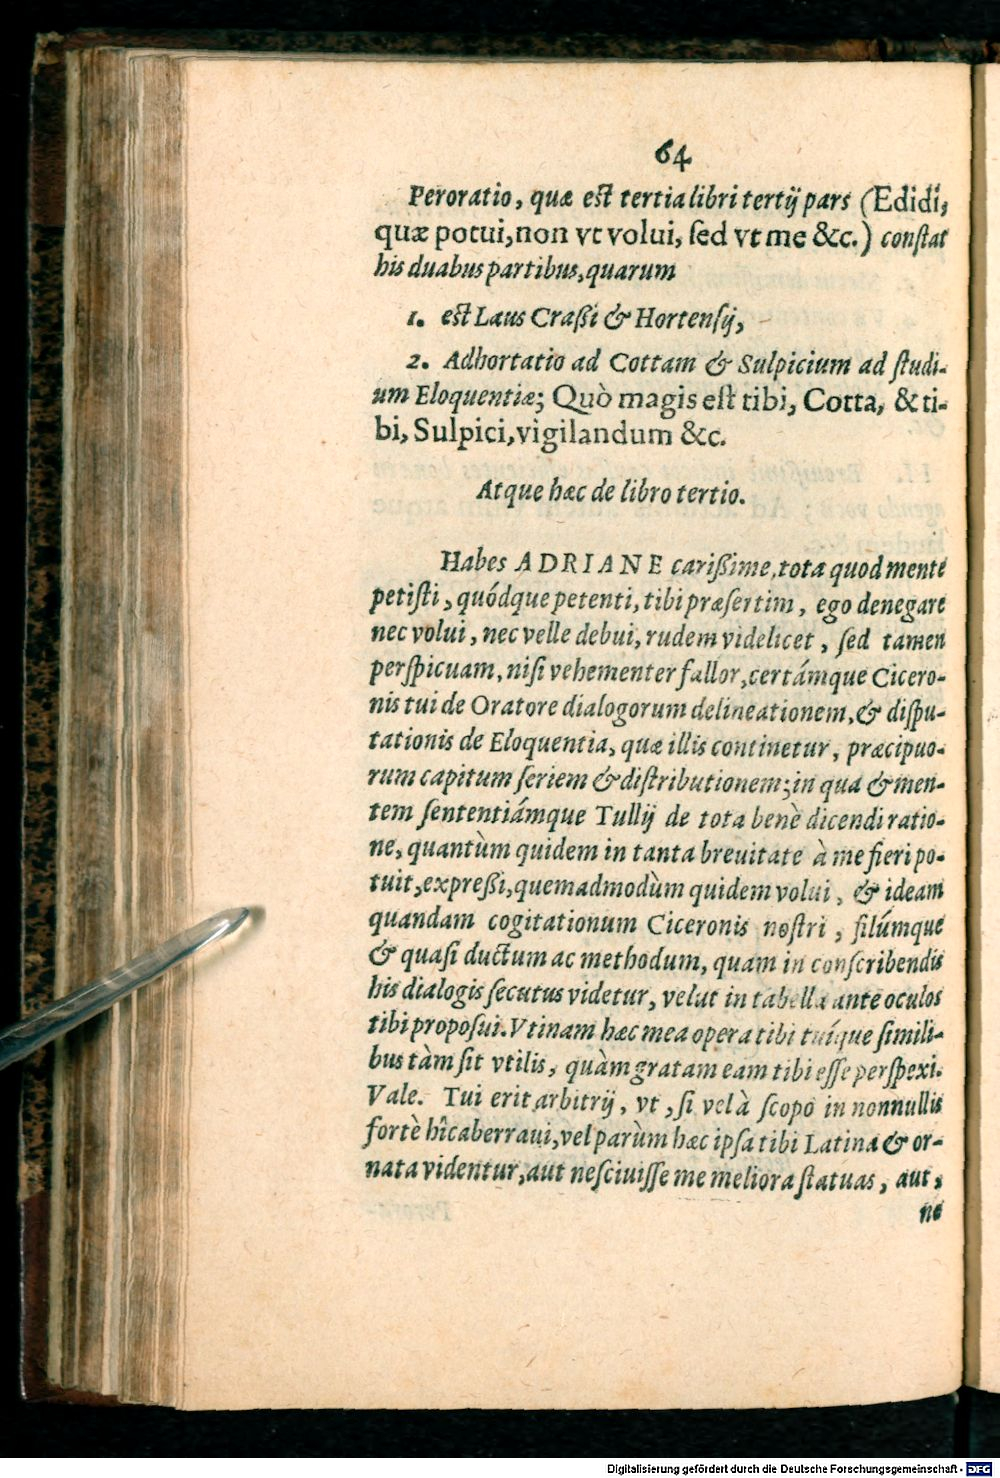 64
Peroratio, quæ est tertia libri tertij pars (Edidi,
quæ potui, non vt volui, sed vt me &c.) constat
his duabus partibus, quarum
1. est Laus Craßi & Hortensij,
2. Adhortatio ad Cottam & Sulpicium ad studi-
um Eloquentiæ; Quò magis est tibi, Cotta, & ti-
bi, Sulpici, vigilandum &c.
Atque hæc de libro tertio.
Habes ADRIANE carißime, tota quod mente
petisti, quódque petenti, tibi præsertim, ego denegare
nec volui, nec velle debui, rudem videlicet, sed tamen
perspicuam, nisi vehementer fallor, certámque Cicero-
nis tui de Oratore dialogorum delineationem, & dispu-
tationis de Eloquentia, quæ illis continetur, præcipuo-
rum capitum seriem & distributionem; in qua & men-
tem sententiámque Tullij de tota benè dicendi ratio-
ne, quantùm quidem in tanta breuitate à me fieri po-
tuit, expreßi, quemadmodùm quidem volui, & ideam
quandam cogitationum Ciceronis nostri, filúmque
& quasi ductum ac methodum, quam in conscribendis
his dialogis secutus videtur, velut in tabella ante oculos
tibi proposui. Vtinam hæc mea opera tibi tuíque simili-
bus tàm sit vtilis, quàm gratam eam tibi esse perspexi.
Vale. Tui erit arbitrij, vt, si vel à scopo in nonnullis
fortè hîc aberraui, vel parùm hæc ipsa tibi Latina & or-
nata videntur, aut nesciuisse me meliora statuas, aut,
ne
Digitalisierung gefördert durch die Deutsche Forschungsgemeinschaft - DFG